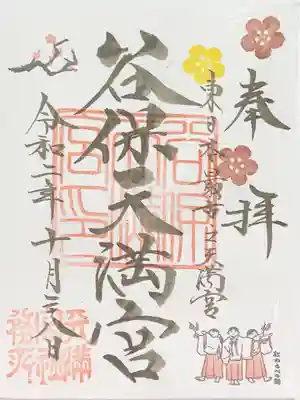 奉拝
東日本最古之天満宮
谷保天満宮
令和二年十月二八日